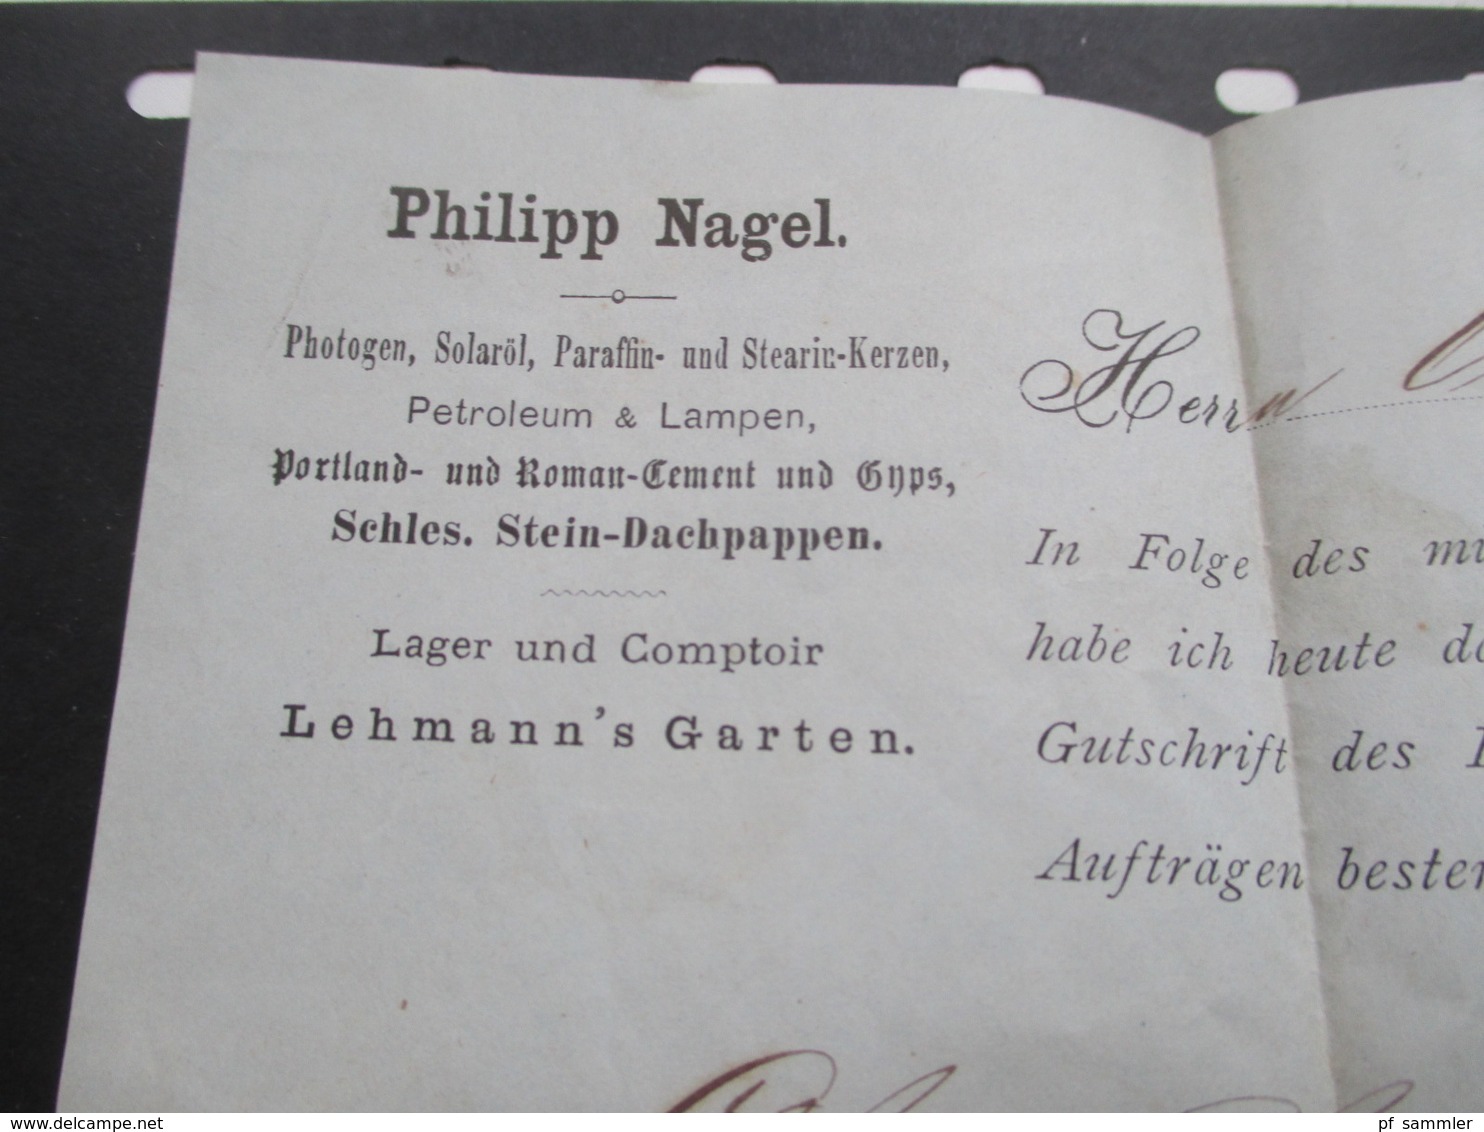 Philipp Nagel.
Photogen, Solaröl, Paraffin- und Stearin-Kerzen,
Petroleum & Lampen,
Portland- und Roman-Cement und Gyps,
Schles. Stein-Dachpappen.
Lager und Comptoir
Lehmann's Garten.
Herrn
In Folge des
habe ich heute
Gutschrift des
Aufträgen
delcampe.net
pf_sammler